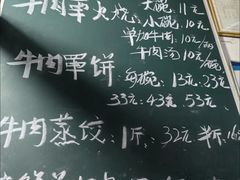 牛肉罩火烧 大碗 11元
小碗 10元
单加牛肉 10元/两
牛肉汤 10元/碗
牛肉罩饼 每碗: 13元 23元
33元 43元 53元
牛肉蒸饺: 1斤: 32元 半斤: 16元